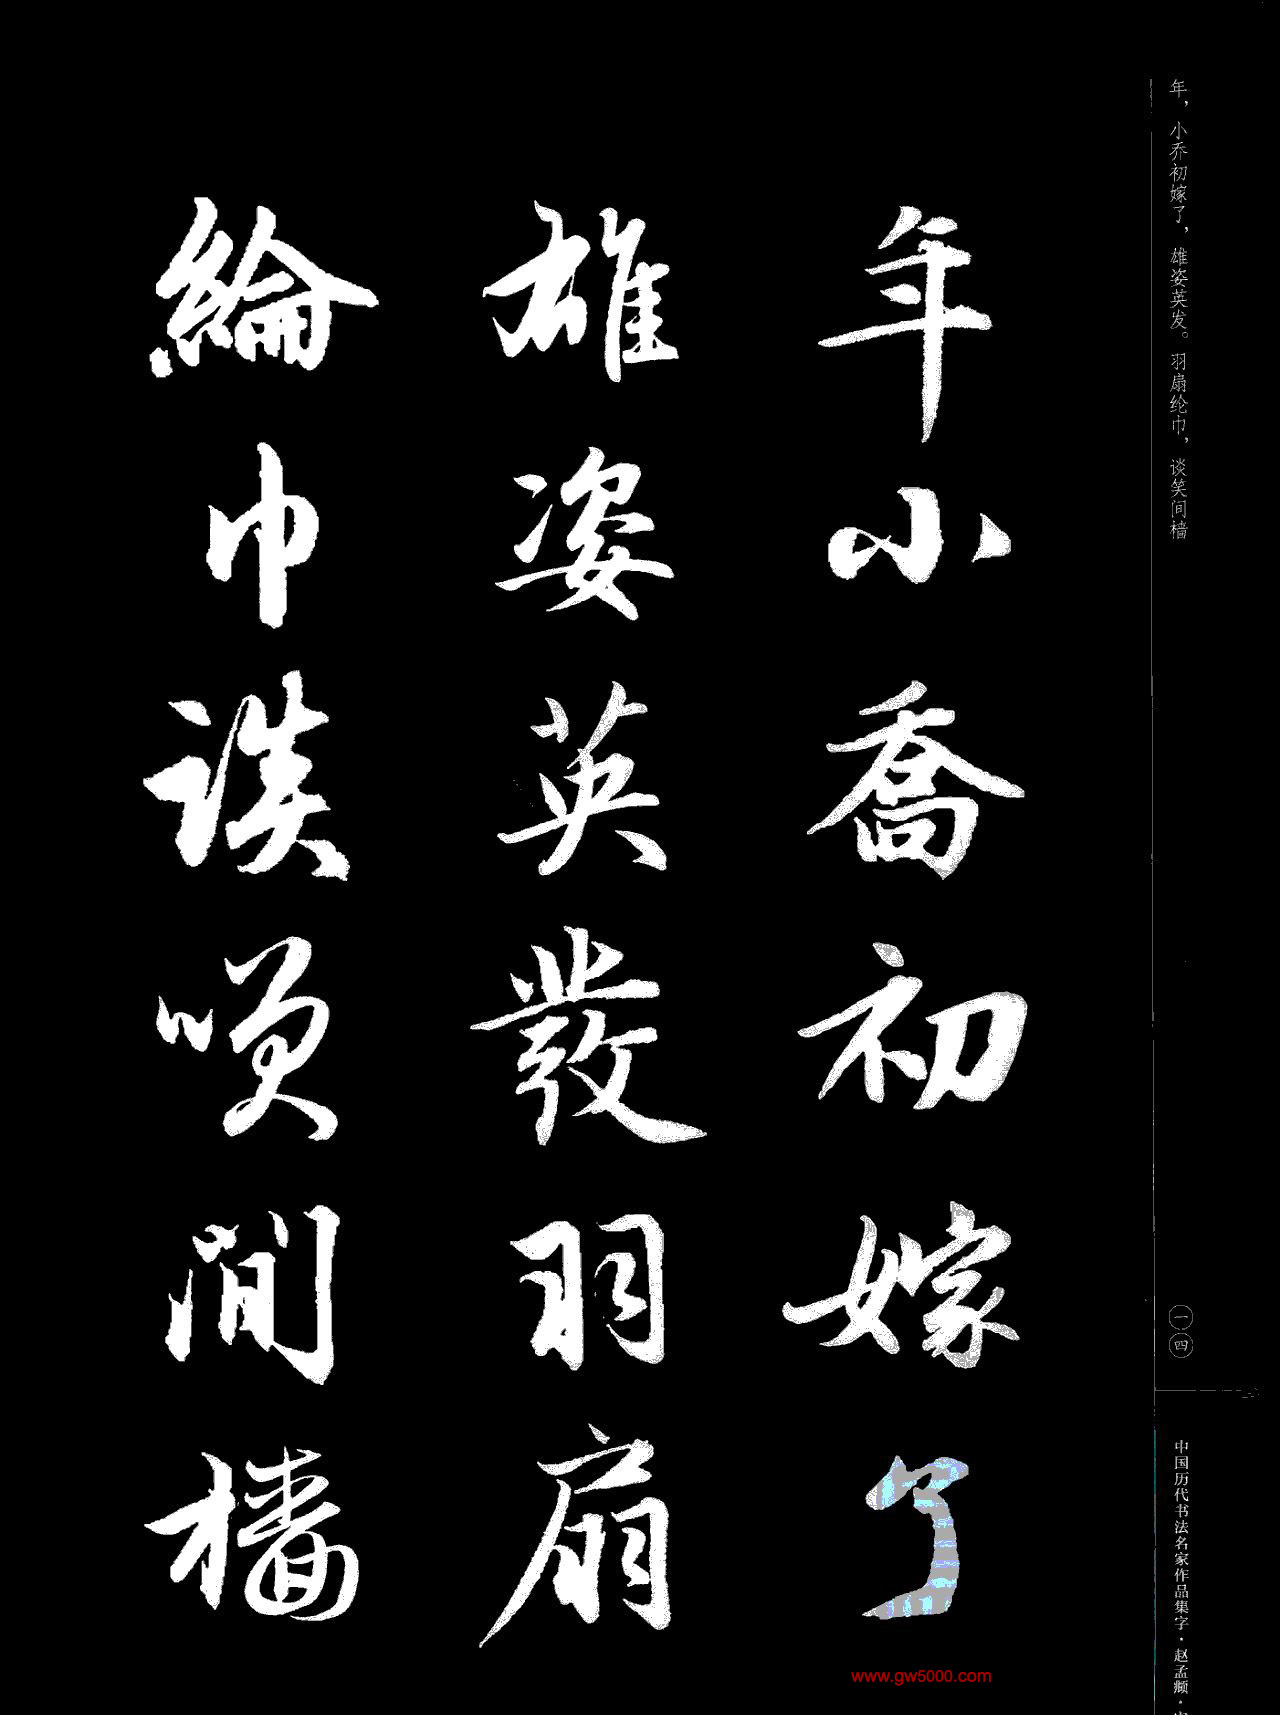 年，小乔初嫁了，雄姿英发。羽扇纶巾，谈笑间樯
年小喬初嫁了
雄姿英發羽扇
綸巾談噗間檣
一四
中国历代书法名家作品集字·赵孟頫·
www.gw5000.com